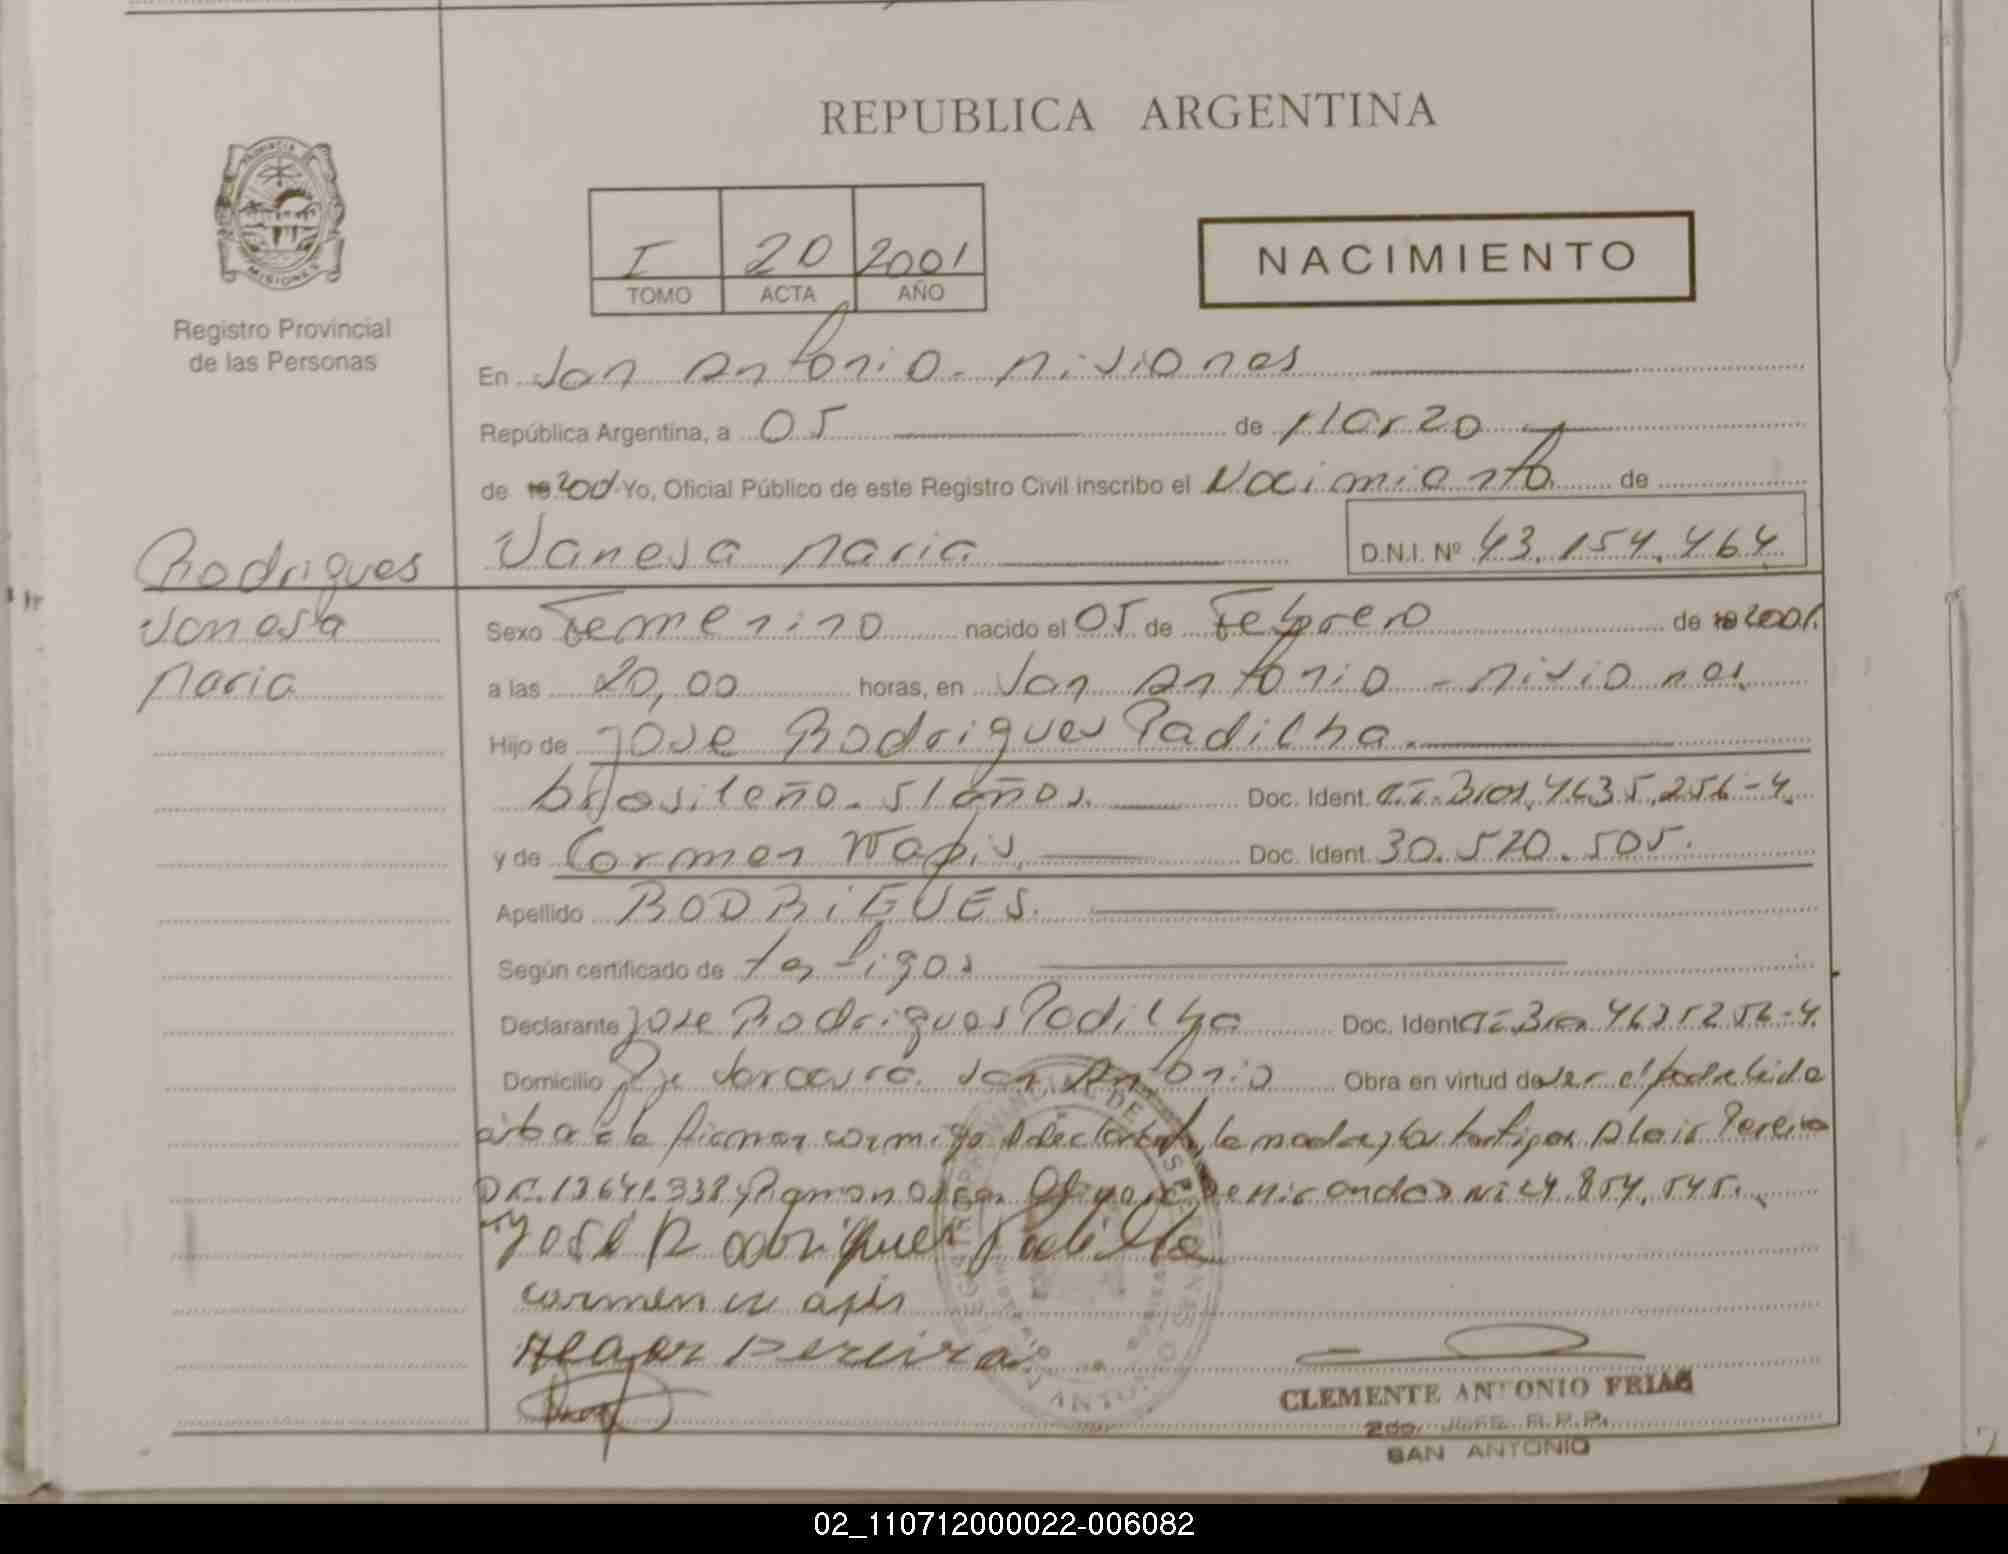 REPUBLICA ARGENTINA
PROVINCIA DE
MISIONES
Registro Provincial
de las Personas
I 20 2001
TOMO ACTA AÑO
NACIMIENTO
En San Antonio - Misiones
República Argentina, a 05 de Marzo
de 19 2001 Yo, Oficial Público de este Registro Civil inscribo el Nacimiento de
Vanesa Maria D.N.I. Nº 43.154.464
Rodrigues
Vanesa
Maria
Sexo Femenino nacido el 05 de Febrero de 19 2001.
a las 20,00 horas, en San Antonio - Misiones.
Hijo de Jose Rodrigues Padilha.
brasileño - 51 años. Doc. Ident. C.I. Bras. 4635.256-4.
y de Carmen Wapis, Doc. Ident. 30.520.505.
Apellido RODRIGUES.
Según certificado de testigos
Declarante Jose Rodrigues Padilha Doc. Ident C.I. Bras 4635256-4.
Domicilio Pje Saracura. San Antonio Obra en virtud de ser el padre
firman conmigo el declarante, la madre y los testigos Alair Pereira
13.641.338 y Ramon de Miranda DNI 24.854.545.
José Rodrigues Padilha
carmen w apis
Alair Pereira
CLEMENTE ANTONIO FRIAS
2do. JEFE R.P.P.
SAN ANTONIO
02_110712000022-006082